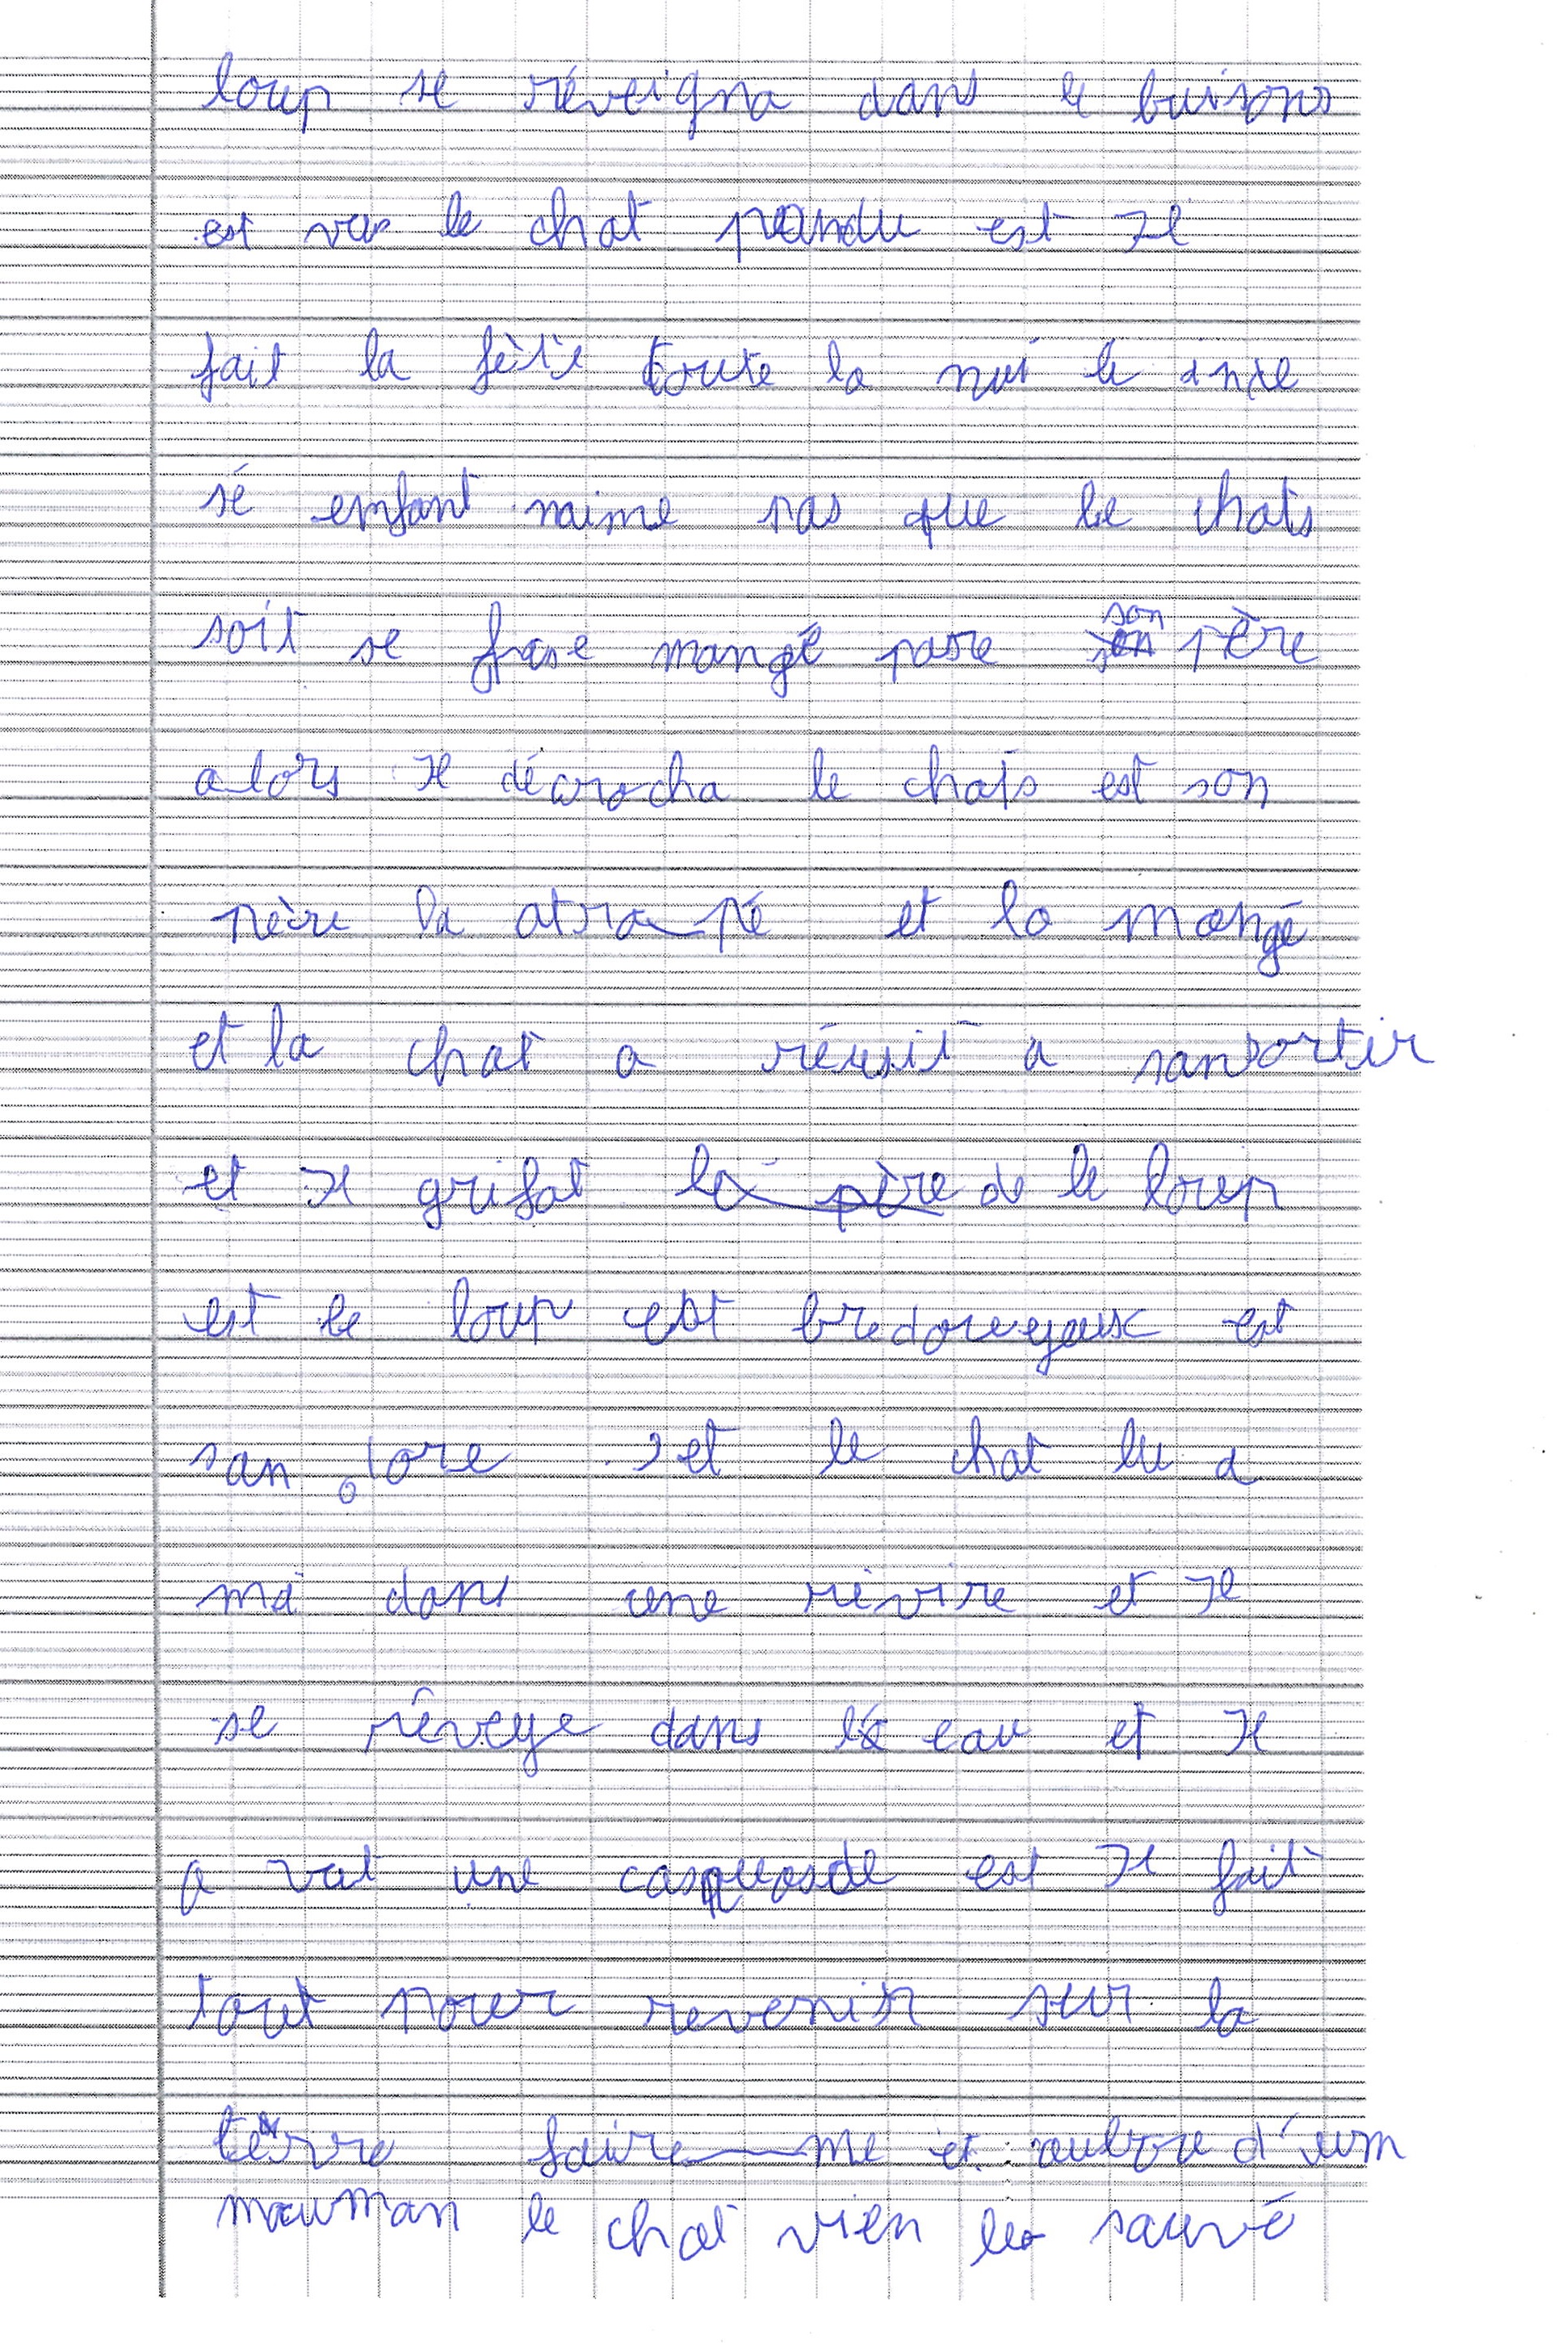 loup se réveigna dans le buisons
est vas le chat pandu est Il
fait la fète toute la nui le
sé enfant naime pas que le chats
soit se frase mangé pare son père
alors Il décrocha le chats est son
père la atrapé et la mangé
et la chat a réusit a sansortir
et Il grifat la père de le loup
est le loup est bredoueyeux est
san et le chat lu a
mi dans une rivire et Il
se rêveye dans l eau et Il
a vat une casquasde est Il fait
tout pour revenir sur la
terre faire me et d'um
mauman le chat vien les sauvé